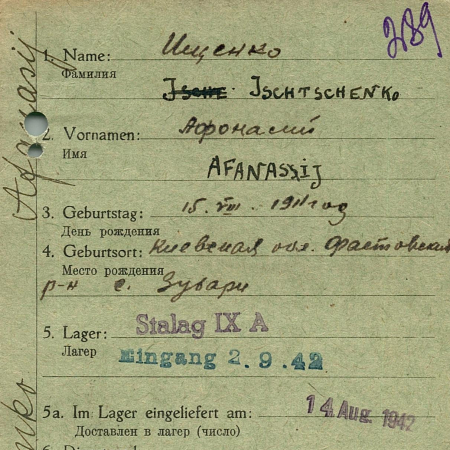 289
1. Name: Ищенко
Фамилия
Jsche Jschtschenko
2. Vornamen: Афонасий
Имя
Afanassij
3. Geburtstag: 15. VIII. 1911 год
День рождения
4. Geburtsort: Киевская обл. Фастовский
Место рождения
р-н с. Зубари
5. Lager: Stalag IX A
Лагер Eingang 2.9.42
5a. Im Lager eingeliefert am: 14 Aug. 1942
Доставлен в лагер (число)
Afanasij